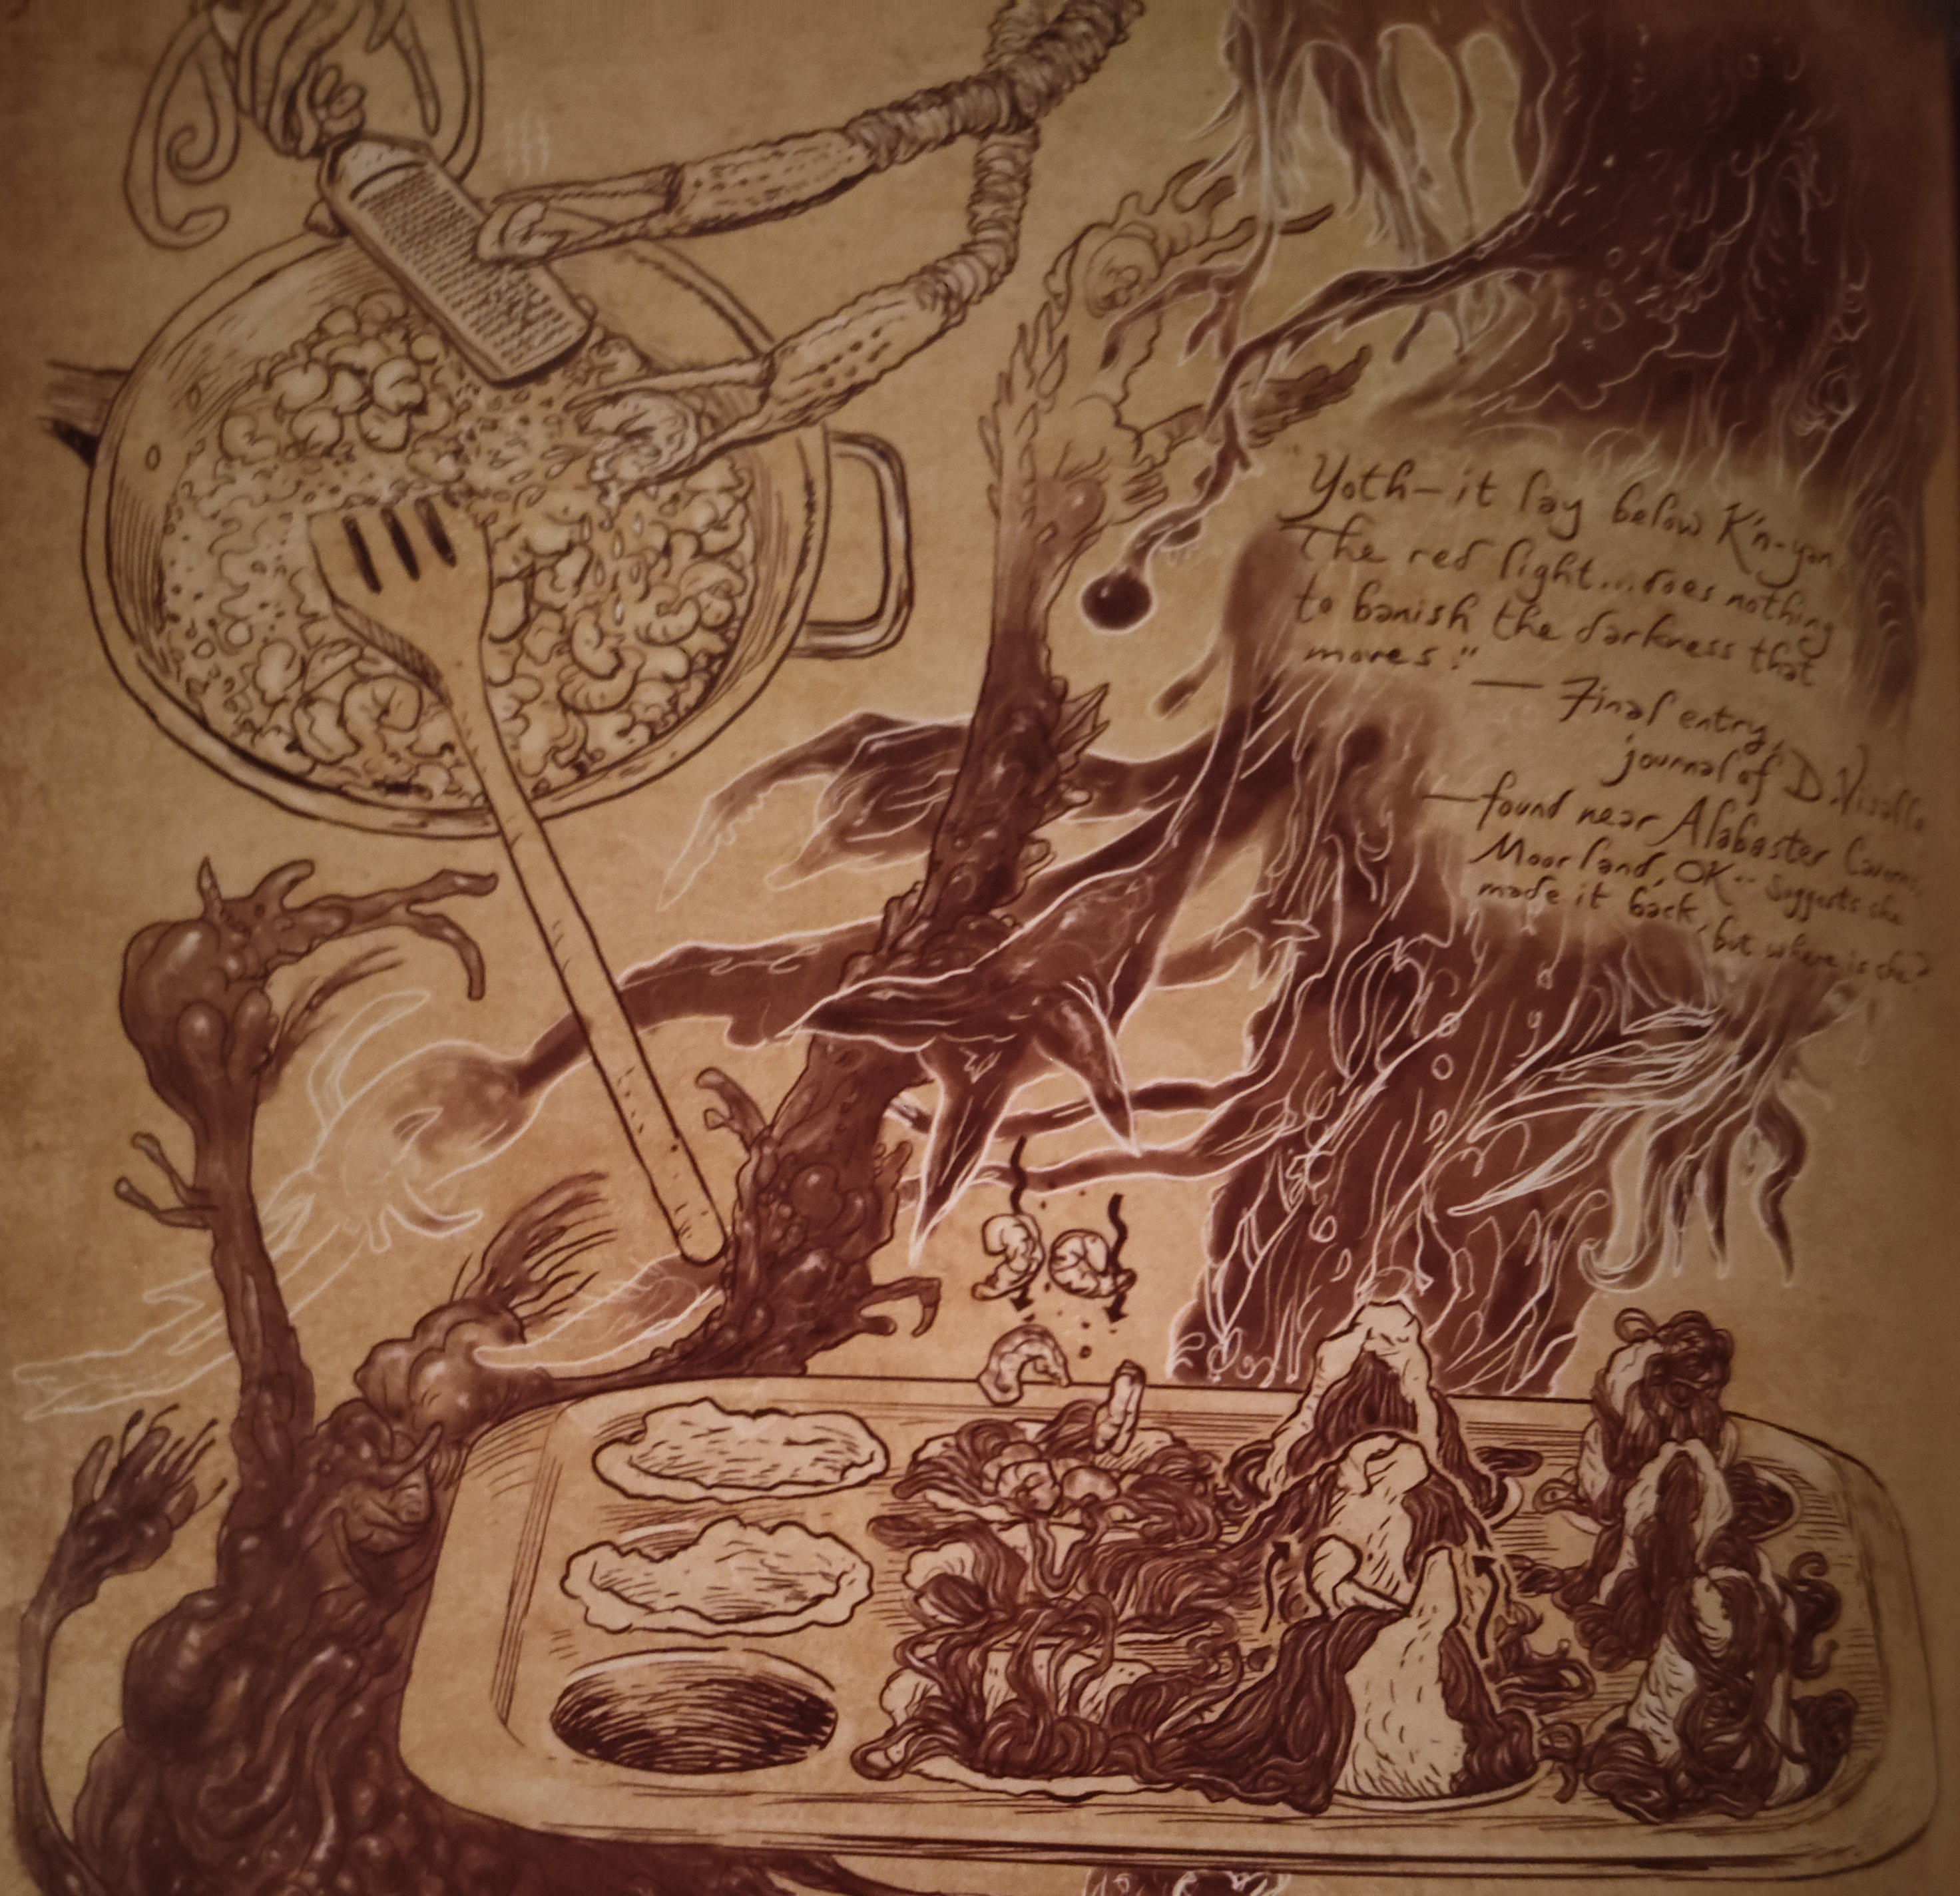 "Yoth—it lay below K'n-yan
The red light...does nothing
to banish the darkness that
moves."
— Final entry,
journal of D. Visallo
—found near Alabaster Caverns,
Moorland, OK -- suggests she
made it back, but where is she?